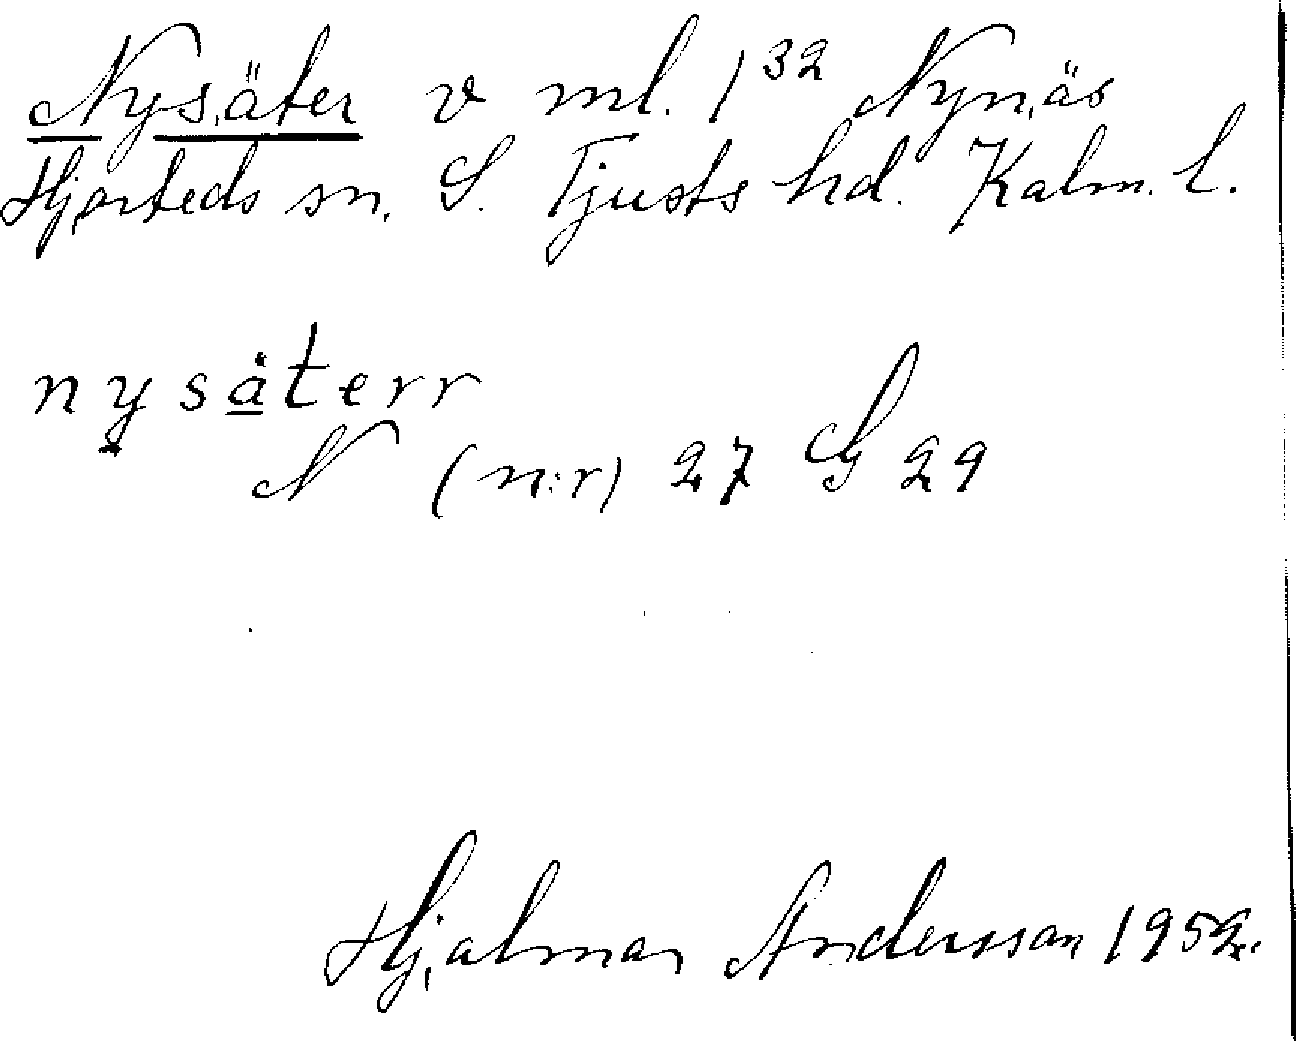 Nysäter v ml. 1 32 Nynäs
Hjorteds sn. S. Tjusts hd. Kalm. l.
nysäterr
N (n:r) 27 G 29
Hjalmar Andersson 1952.